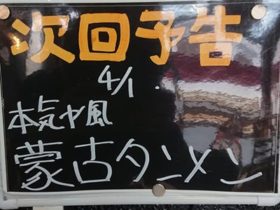 次回予告
4/1
本気中風
蒙古タンメン